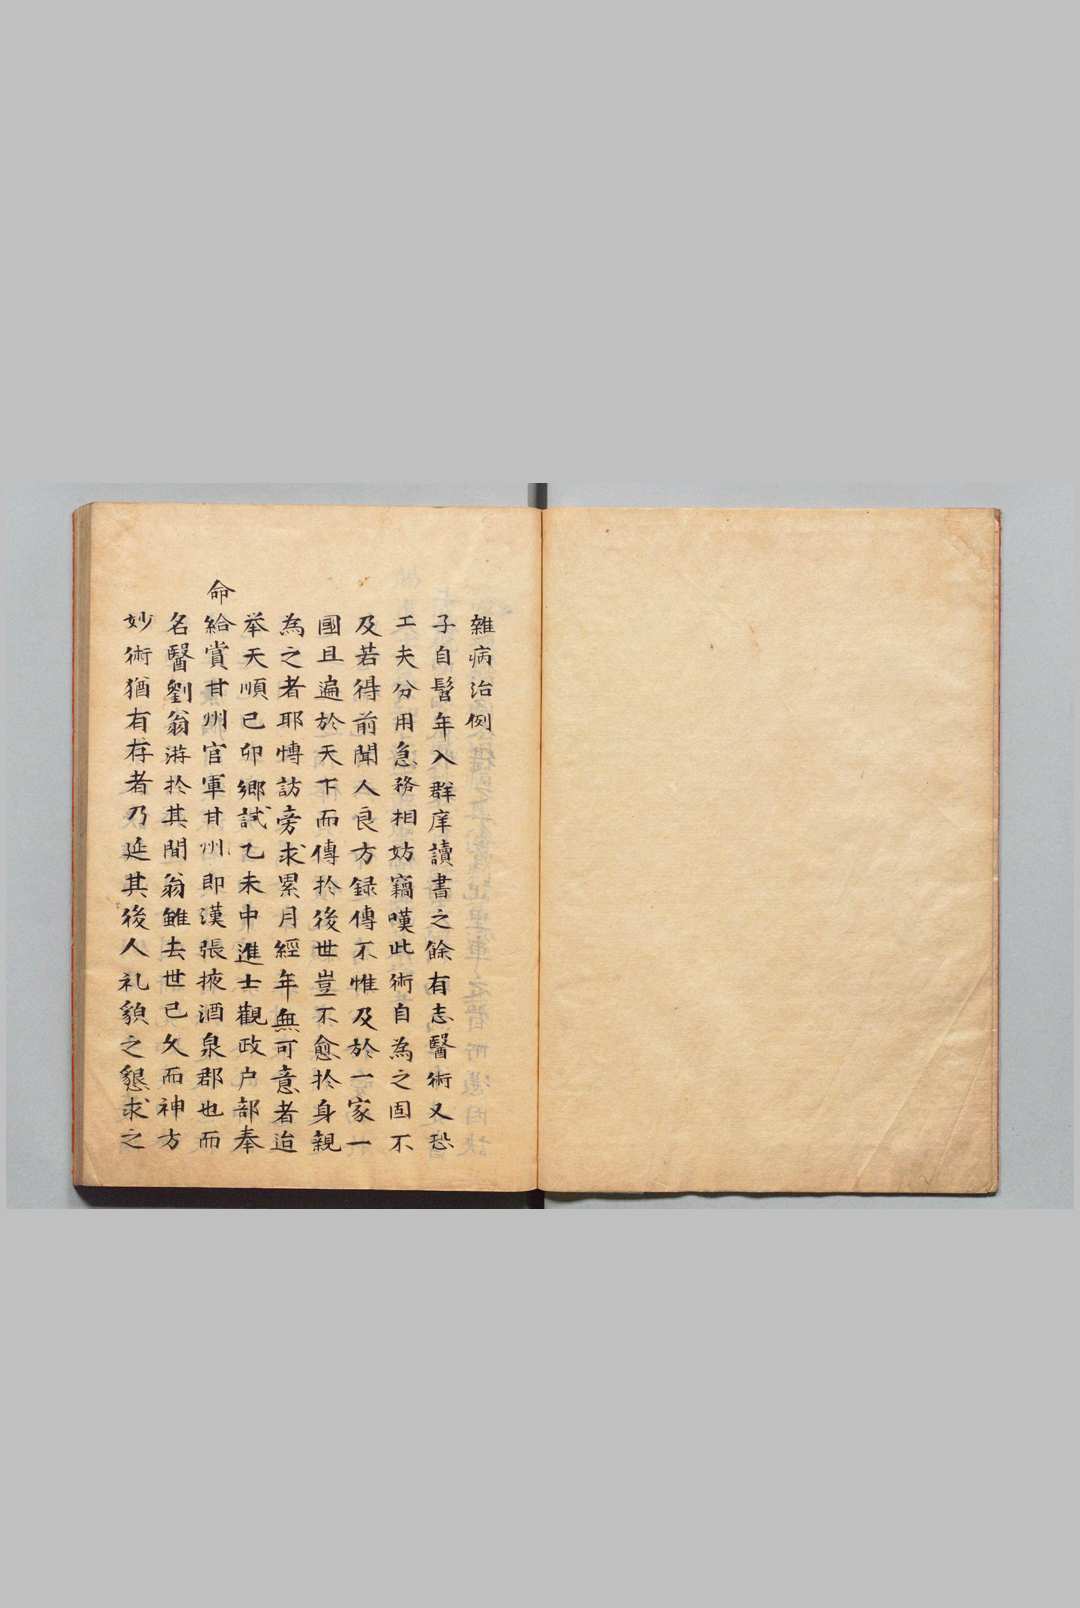 雜病治例
子自髫年入群庠讀書之餘有志醫術又恐
工夫分用急務相妨竊嘆此術自為之固不
及若得前聞人良方録傳不惟及於一家一
國且遍於天下而傳於後世豈不愈於身親
為之者耶慱訪旁求累月經年無可意者迨
举天順己卯鄉試乙未中進士觀政户部奉
命給賞甘州官軍甘州即漢張掖酒泉郡也而
名醫劉翁游於其間翁雖去世已久而神方
妙術猶有存者乃延其後人礼貌之懇求之